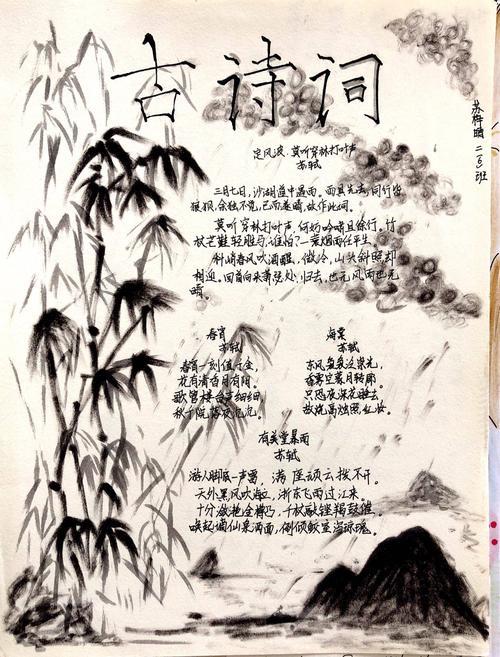 古诗词
苏梓晴 二(6)班
定风波·莫听穿林打叶声
苏轼
三月七日，沙湖道中遇雨。雨具先去，同行皆
狼狈，余独不觉，已而遂晴，故作此词。
莫听穿林打叶声，何妨吟啸且徐行。竹
杖芒鞋轻胜马，谁怕？一蓑烟雨任平生。
料峭春风吹酒醒，微冷，山头斜照却
相迎。回首向来萧瑟处，归去，也无风雨也无
晴。
春宵
苏轼
春宵一刻值千金，
花有清香月有阴。
歌管楼台声细细
秋千院落夜沉沉。
海棠
苏轼
东风袅袅泛崇光，
香雾空蒙月转廊。
只恐夜深花睡去
故烧高烛照红妆。
有美堂暴雨
苏轼
游人脚底一声雷，满座顽云拨不开。
天外黑风吹海立，浙东飞雨过江来。
十分潋滟金樽凸，千杖敲铿羯鼓催。
唤起谪仙泉洒面，倒倾鲛室泻琼瑰。